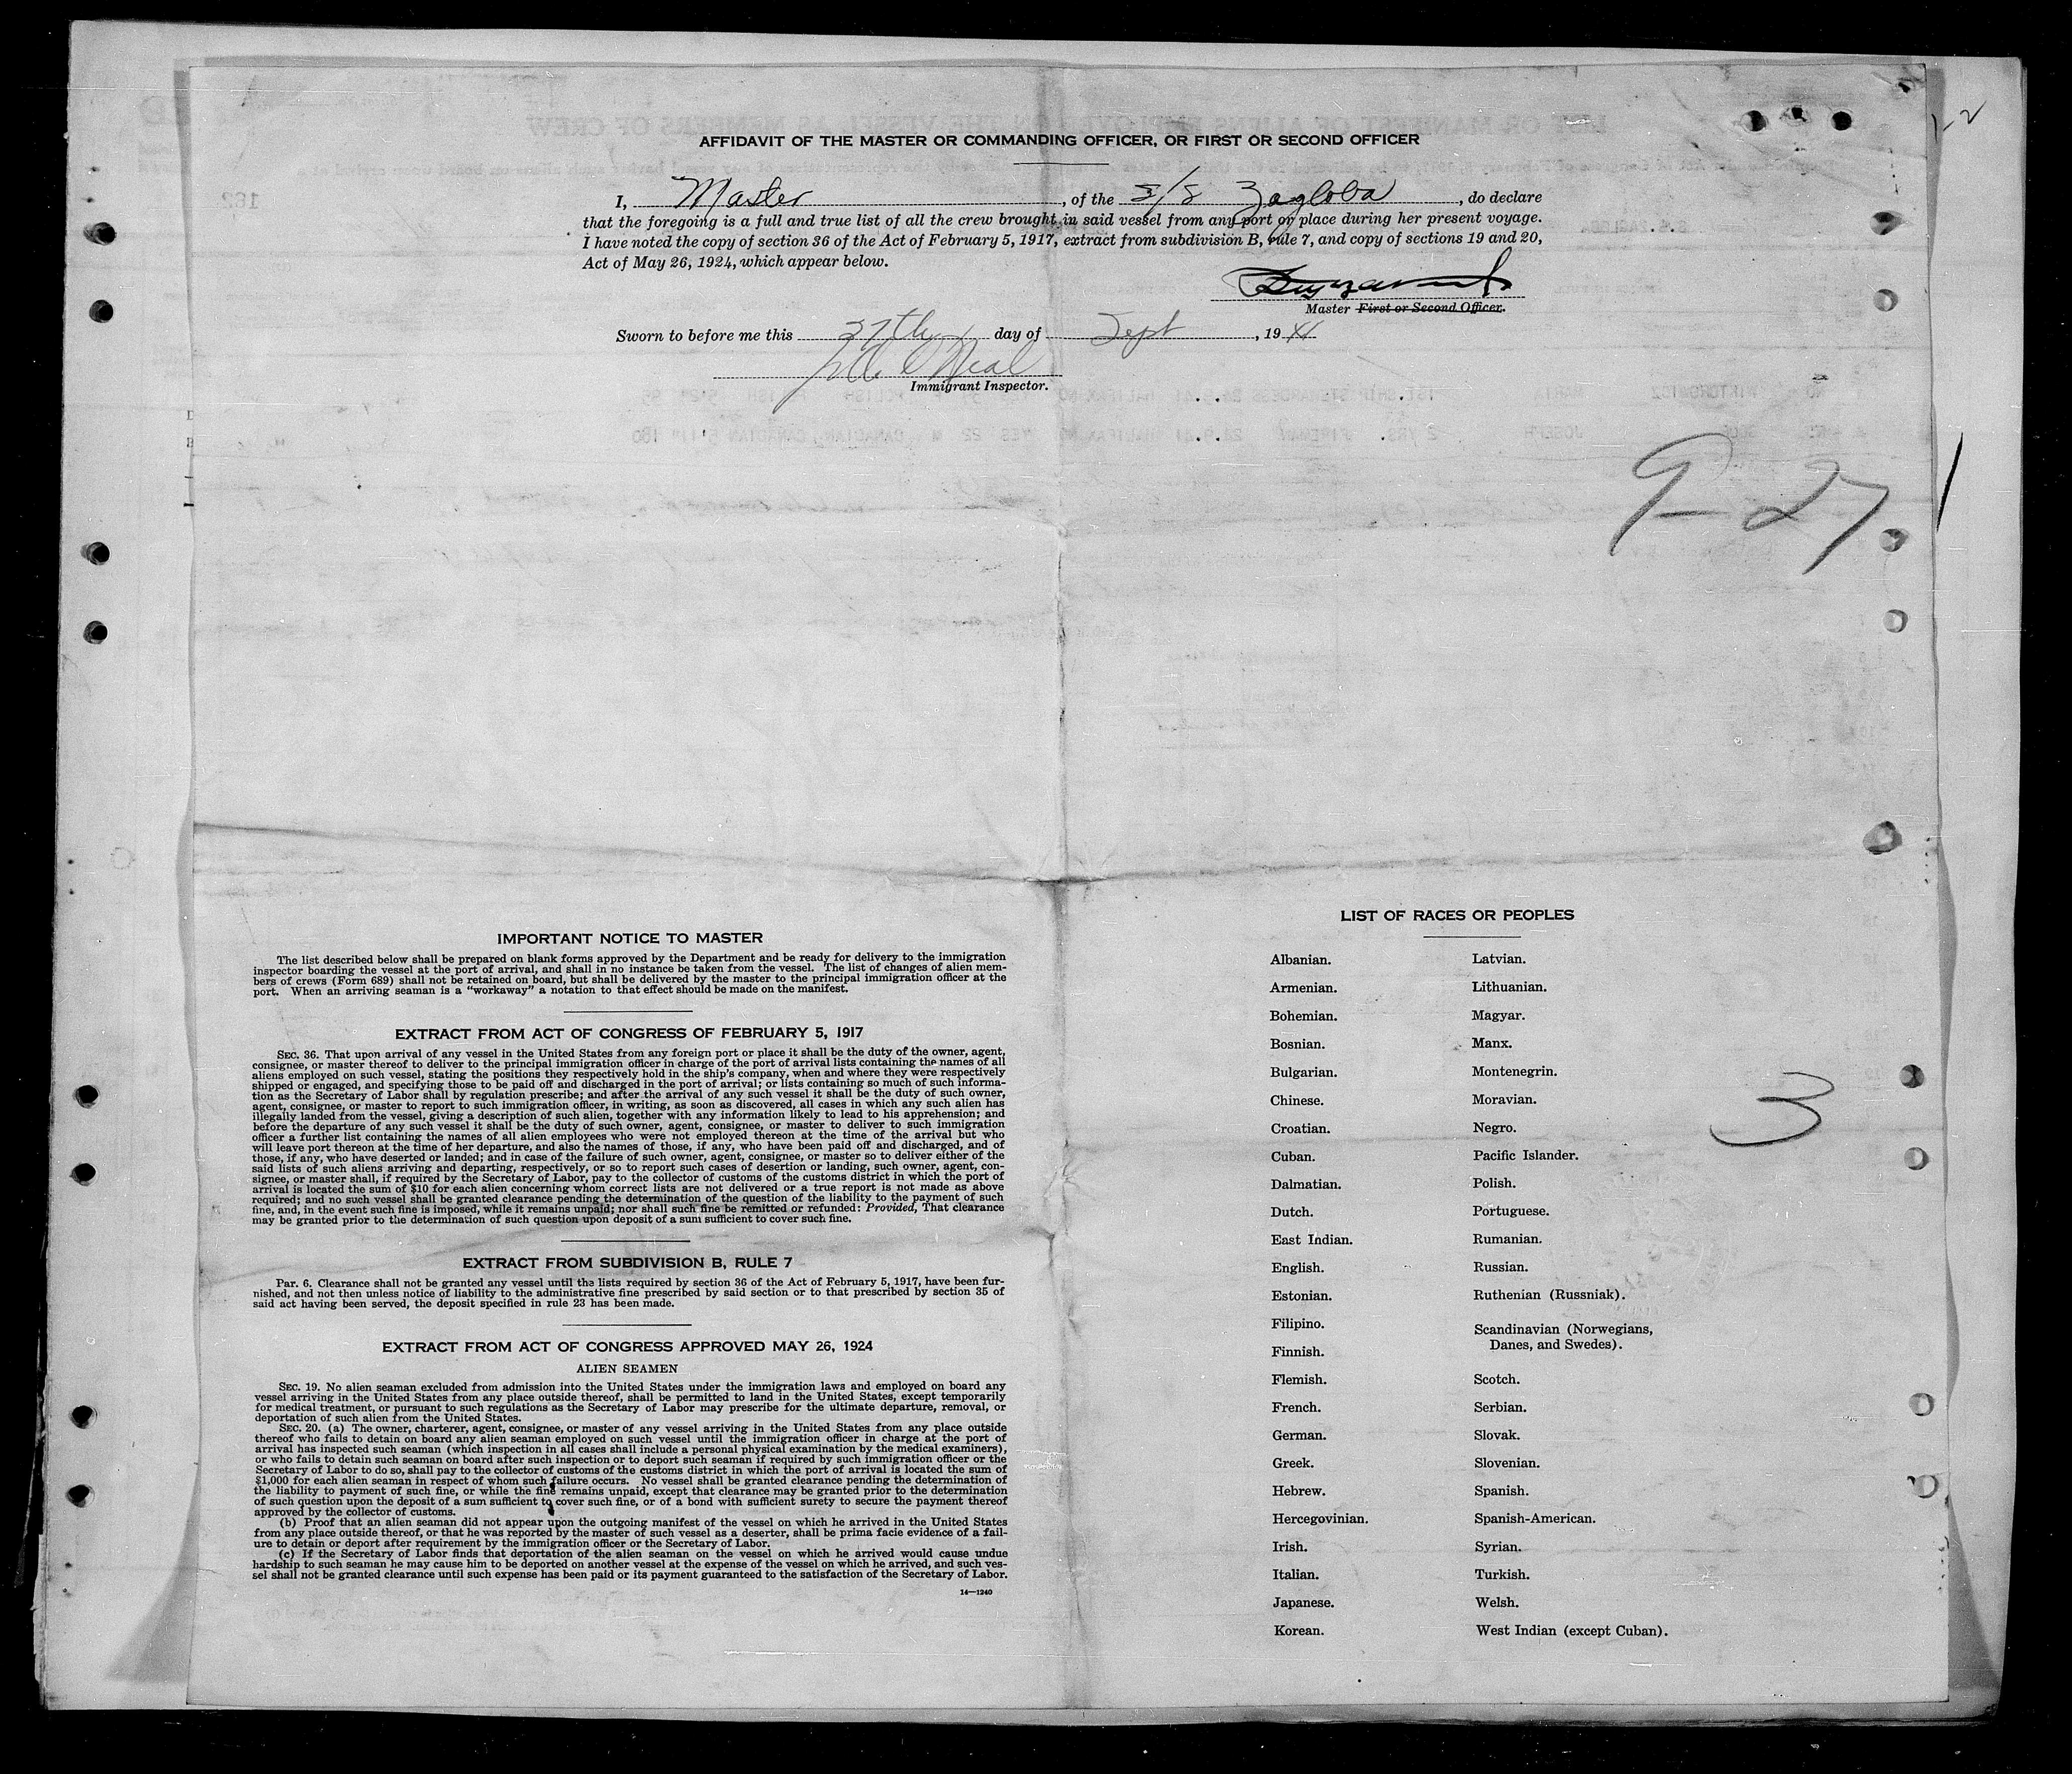 AFFIDAVIT OF THE MASTER OR COMMANDING OFFICER, OR FIRST OR SECOND OFFICER
I, Master, of the S/S Zagloba, do declare
that the foregoing is a full and true list of all the crew brought in said vessel from any port or place during her present voyage.
I have noted the copy of section 36 of the Act of February 5, 1917, extract from subdivision B, rule 7, and copy of sections 19 and 20,
Act of May 26, 1924, which appear below.
Master First or Second Officer.
Sworn to before me this 27th day of Sept, 1941
Immigrant Inspector.
9-27
IMPORTANT NOTICE TO MASTER
The list described below shall be prepared on blank forms approved by the Department and be ready for delivery to the immigration
inspector boarding the vessel at the port of arrival, and shall in no instance be taken from the vessel. The list of changes of alien mem-
bers of crews (Form 689) shall not be retained on board, but shall be delivered by the master to the principal immigration officer at the
port. When an arriving seaman is a "workaway" a notation to that effect should be made on the manifest.
EXTRACT FROM ACT OF CONGRESS OF FEBRUARY 5, 1917
SEC. 36. That upon arrival of any vessel in the United States from any foreign port or place it shall be the duty of the owner, agent,
consignee, or master thereof to deliver to the principal immigration officer in charge of the port of arrival lists containing the names of all
aliens employed on such vessel, stating the positions they respectively hold in the ship's company, when and where they were respectively
shipped or engaged, and specifying those to be paid off and discharged in the port of arrival; or lists containing so much of such informa-
tion as the Secretary of Labor shall by regulation prescribe; and after the arrival of any such vessel it shall be the duty of such owner,
agent, consignee, or master to report to such immigration officer, in writing, as soon as discovered, all cases in which any such alien has
illegally landed from the vessel, giving a description of such alien, together with any information likely to lead to his apprehension; and
before the departure of any such vessel it shall be the duty of such owner, agent, consignee, or master to deliver to such immigration
officer a further list containing the names of all alien employees who were not employed thereon at the time of the arrival but who
will leave port thereon at the time of her departure, and also the names of those, if any, who have been paid off and discharged, and of
those, if any, who have deserted or landed; and in case of the failure of such owner, agent, consignee, or master so to deliver either of the
said lists of such aliens arriving and departing, respectively, or so to report such cases of desertion or landing, such owner, agent, con-
signee, or master shall, if required by the Secretary of Labor, pay to the collector of customs of the customs district in which the port of
arrival is located the sum of $10 for each alien concerning whom correct lists are not delivered or a true report is not made as above
required; and no such vessel shall be granted clearance pending the determination of the question of the liability to the payment of such
fine, and, in the event such fine is imposed, while it remains unpaid; nor shall such fine be remitted or refunded: Provided, That clearance
may be granted prior to the determination of such question upon deposit of a sum sufficient to cover such fine.
EXTRACT FROM SUBDIVISION B, RULE 7
Par. 6. Clearance shall not be granted any vessel until the lists required by section 36 of the Act of February 5, 1917, have been fur-
nished, and not then unless notice of liability to the administrative fine prescribed by said section or to that prescribed by section 35 of
said act having been served, the deposit specified in rule 23 has been made.
EXTRACT FROM ACT OF CONGRESS APPROVED MAY 26, 1924
ALIEN SEAMEN
SEC. 19. No alien seaman excluded from admission into the United States under the immigration laws and employed on board any
vessel arriving in the United States from any place outside thereof, shall be permitted to land in the United States, except temporarily
for medical treatment, or pursuant to such regulations as the Secretary of Labor may prescribe for the ultimate departure, removal, or
deportation of such alien from the United States.
SEC. 20. (a) The owner, charterer, agent, consignee, or master of any vessel arriving in the United States from any place outside
thereof who fails to detain on board any alien seaman employed on such vessel until the immigration officer in charge at the port of
arrival has inspected such seaman (which inspection in all cases shall include a personal physical examination by the medical examiners),
or who fails to detain such seaman on board after such inspection or to deport such seaman if required by such immigration officer or the
Secretary of Labor to do so, shall pay to the collector of customs of the customs district in which the port of arrival is located the sum of
$1,000 for each alien seaman in respect of whom such failure occurs. No vessel shall be granted clearance pending the determination of
the liability to payment of such fine, or while the fine remains unpaid, except that clearance may be granted prior to the determination
of such question upon the deposit of a sum sufficient to cover such fine, or of a bond with sufficient surety to secure the payment thereof
approved by the collector of customs.
(b) Proof that an alien seaman did not appear upon the outgoing manifest of the vessel on which he arrived in the United States
from any place outside thereof, or that he was reported by the master of such vessel as a deserter, shall be prima facie evidence of a fail-
ure to detain or deport after requirement by the immigration officer or the Secretary of Labor.
(c) If the Secretary of Labor finds that deportation of the alien seaman on the vessel on which he arrived would cause undue
hardship to such seaman he may cause him to be deported on another vessel at the expense of the vessel on which he arrived, and such ves-
sel shall not be granted clearance until such expense has been paid or its payment guaranteed to the satisfaction of the Secretary of Labor.
14—1240
LIST OF RACES OR PEOPLES
Albanian.
Armenian.
Bohemian.
Bosnian.
Bulgarian.
Chinese.
Croatian.
Cuban.
Dalmatian.
Dutch.
East Indian.
English.
Estonian.
Filipino.
Finnish.
Flemish.
French.
German.
Greek.
Hebrew.
Hercegovinian.
Irish.
Italian.
Japanese.
Korean.
Latvian.
Lithuanian.
Magyar.
Manx.
Montenegrin.
Moravian.
Negro.
Pacific Islander.
Polish.
Portuguese.
Rumanian.
Russian.
Ruthenian (Russniak).
Scandinavian (Norwegians,
Danes, and Swedes).
Scotch.
Serbian.
Slovak.
Slovenian.
Spanish.
Spanish-American.
Syrian.
Turkish.
Welsh.
West Indian (except Cuban).
3